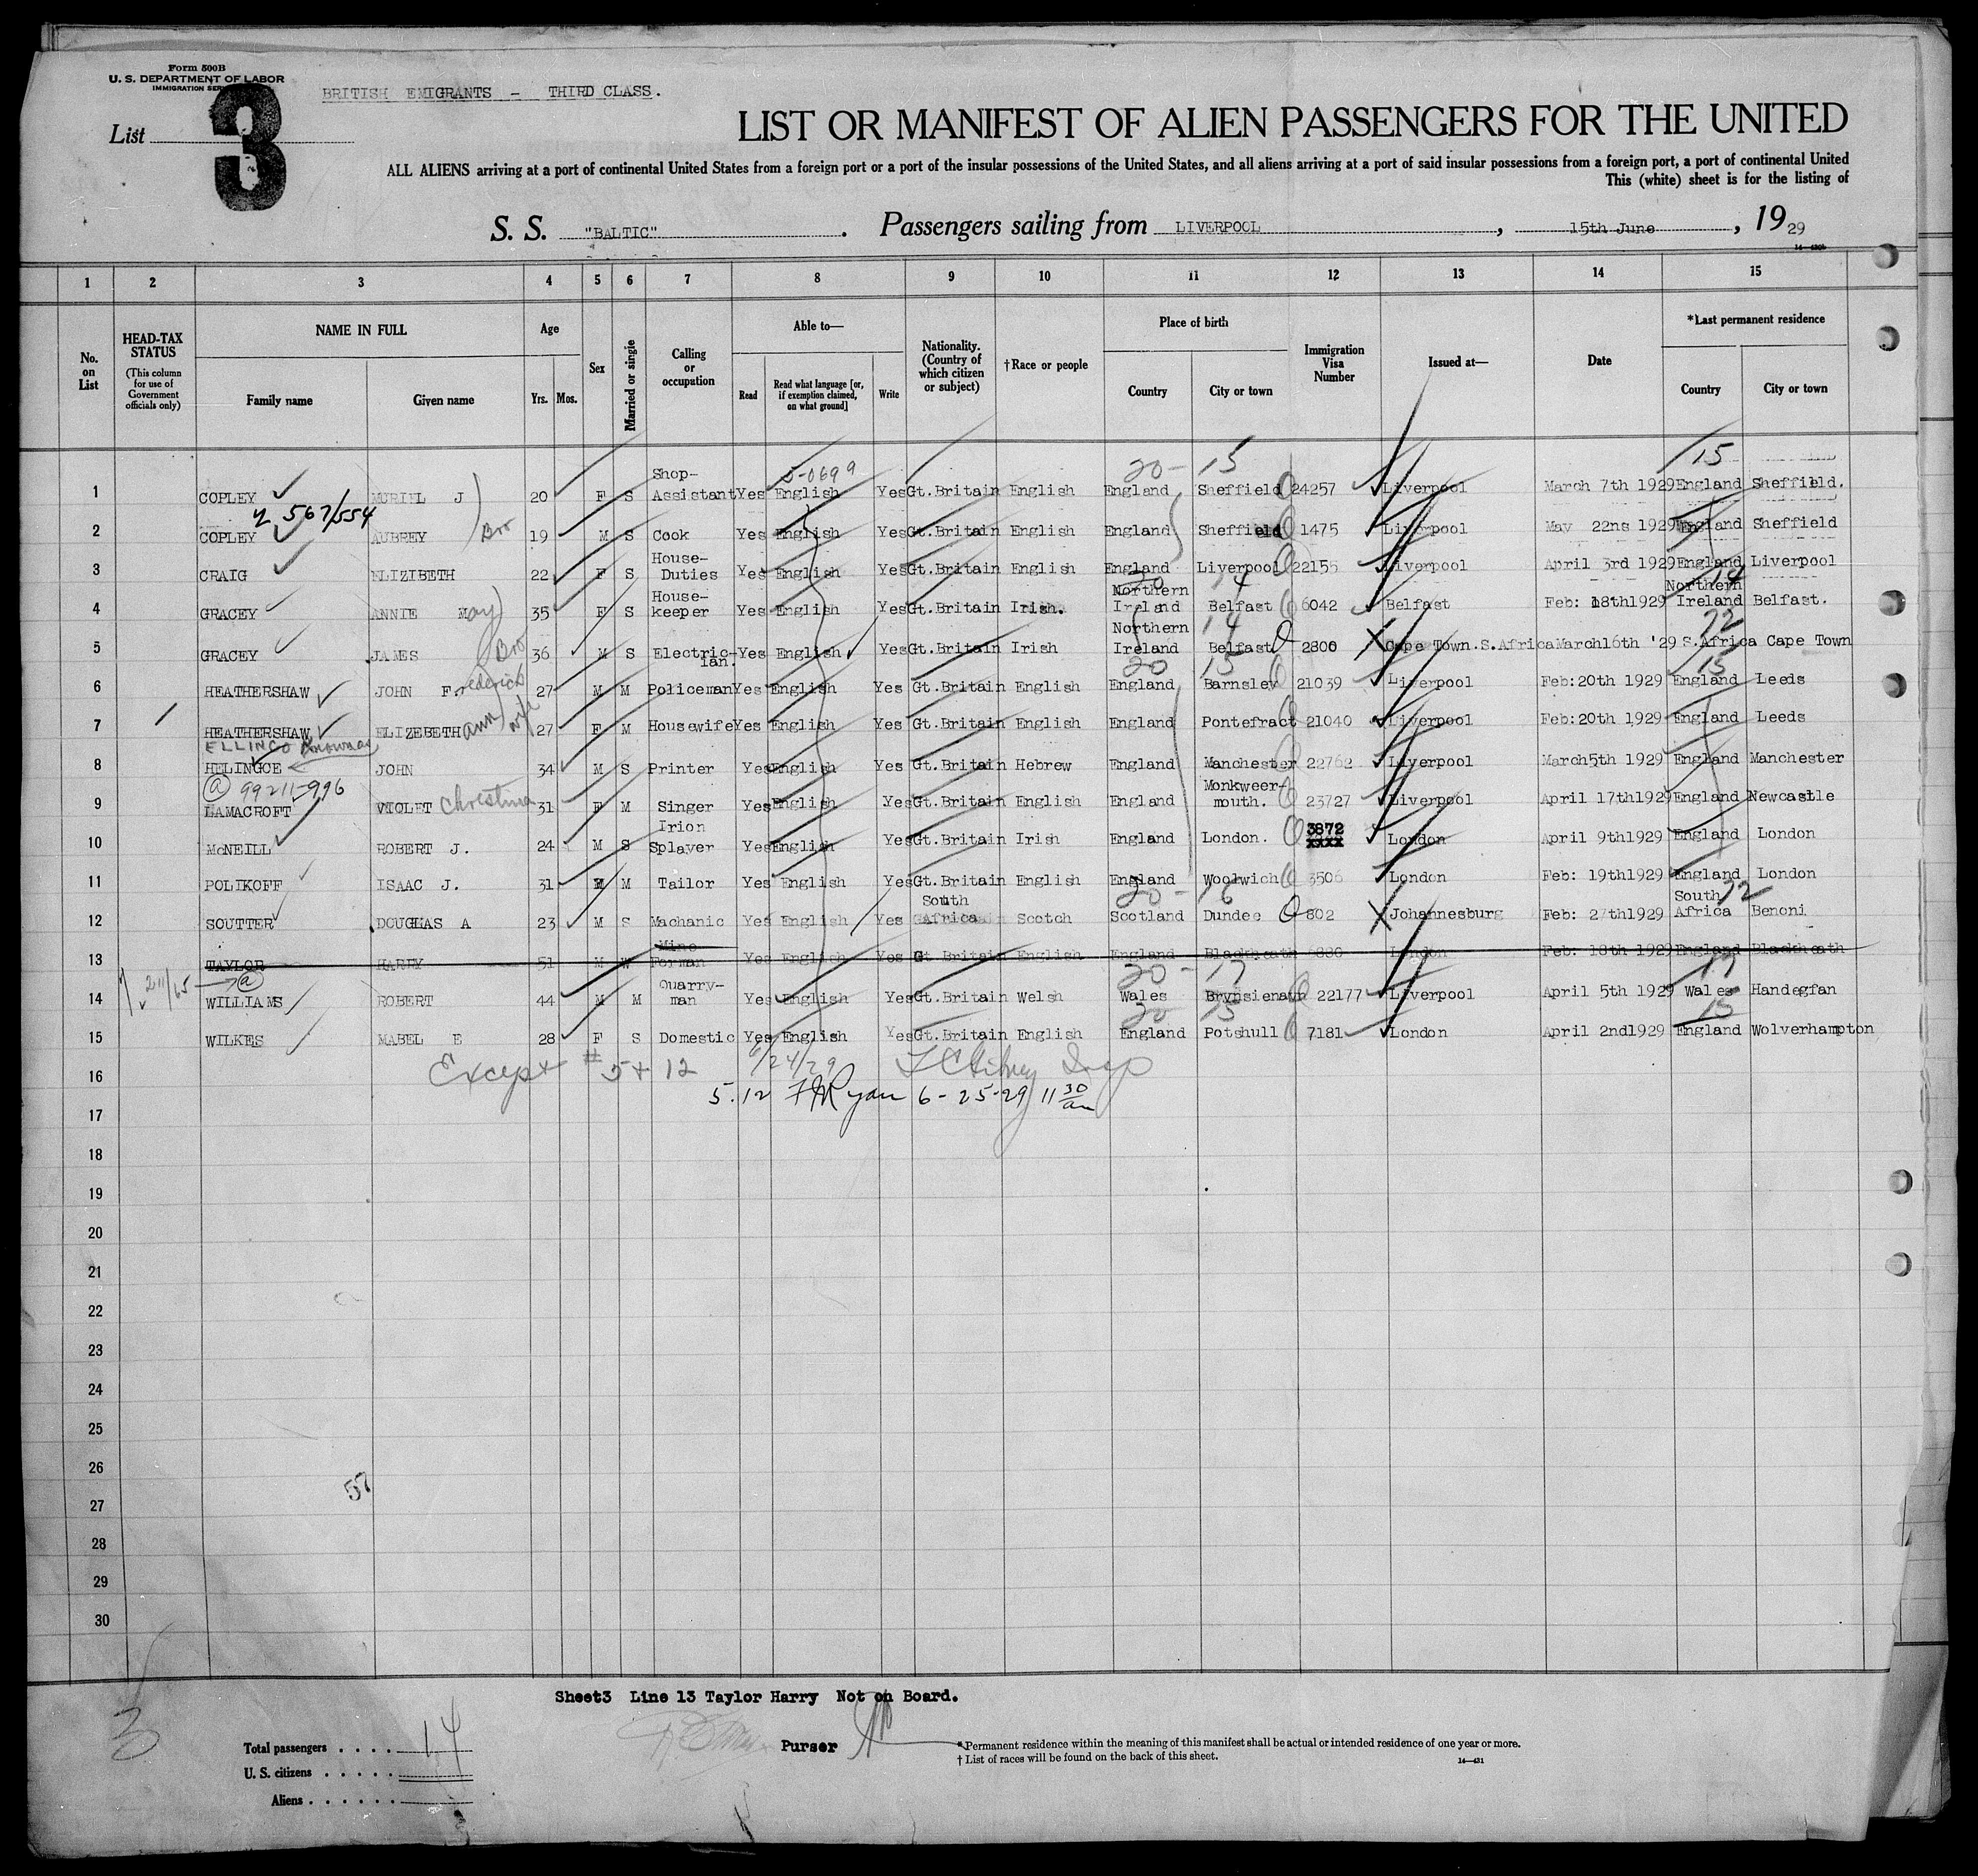 Form 500B
U. S. DEPARTMENT OF LABOR
IMMIGRATION
BRITISH EMIGRANTS - THIRD CLASS.
List 3
LIST OR MANIFEST OF ALIEN PASSENGERS FOR THE UNITED
ALL ALIENS arriving at a port of continental United States from a foreign port or a port of the insular possessions of the United States, and all aliens arriving at a port of said insular possessions from a foreign port, a port of continental United
This (white) sheet is for the listing of
S. S. "BALTIC". Passengers sailing from LIVERPOOL, 15th June, 1929
1 2 3 4 5 6 7 8 9 10 11 12 13 14 15
No. on List
HEAD-TAX STATUS
(This column for use of Government officials only)
NAME IN FULL
Family name
Given name
Age
Yrs.
Mos.
Sex
Married or single
Calling or occupation
Able to—
Read
Read what language [or, if exemption claimed, on what ground]
Write
Nationality. (Country of which citizen or subject)
†Race or people
Place of birth
Country
City or town
Immigration Visa Number
Issued at—
Date
*Last permanent residence
Country
City or town
5-0699 20- 15 15
1 COPLEY MURIEL J 20 F S Shop-Assistant Yes English Yes Gt.Britain English England Sheffield 24257 Liverpool March 7th 1929 England Sheffield.
2 567/554
2 COPLEY AUBREY Bro 19 M S Cook Yes English Yes Gt.Britain English England Sheffield 1475 Liverpool May 22ns 1929 England Sheffield
3 CRAIG ELIZIBETH 22 F S House-Duties Yes English Yes Gt.Britain English England Liverpool 22155 Liverpool April 3rd 1929 England Liverpool
20 14 14
4 GRACEY ANNIE May 35 F S House-keeper Yes English Yes Gt.Britain Irish. Northern Ireland Belfast 6042 Belfast Feb: 18th1929 Northern Ireland Belfast.
14 72
5 GRACEY JAMES Bro 36 M S Electric-ian. Yes English Yes Gt.Britain Irish Northern Ireland Belfast 2800 Cape Town.S.Africa March16th '29 S.Africa Cape Town
20 15 15
6 HEATHERSHAW JOHN Frederick 27 M M Policeman Yes English Yes Gt.Britain English England Barnsley 21039 Liverpool Feb:20th 1929 England Leeds
7 HEATHERSHAW ELIZEBETH ann wife 27 F M Housewife Yes English Yes Gt.Britain English England Pontefract 21040 Liverpool Feb:20th 1929 England Leeds
ELLINCO
8 HELINGOE JOHN 34 M S Printer Yes English Yes Gt.Britain Hebrew England Manchester 22762 Liverpool March5th 1929 England Manchester
@ 99211-996
9 LAMACROFT VIOLET Christina 31 F M Singer Yes English Yes Gt.Britain English England Monkweer-mouth. 23727 Liverpool April 17th1929 England Newcastle
10 McNEILL ROBERT J. 24 M S Irion Splayer Yes English Yes Gt.Britain Irish England London. 3872 xxxx London April 9th1929 England London
11 POLIKOFF ISAAC J. 31 M M Tailor Yes English Yes Gt.Britain English England Woolwich 3506 London Feb: 19th1929 England London
20- 16 72
12 SOUTTER DOUGLAS A 23 M S Machanic Yes English Yes South Africa Scotch Scotland Dundee 802 Johannesburg Feb: 27th1929 South Africa Benoni
13 TAYLOR HARRY 51 M W Mine Forman Yes English Yes Gt Britain English England Blackheath 6880 London Feb: 18th 1929 England Blackheath
211/65 @ 20- 17 17
14 WILLIAMS ROBERT 44 M M Quarry-man Yes English Yes Gt.Britain Welsh Wales Brynsienayn 22177 Liverpool April 5th 1929 Wales Handegfan
20 15 15
15 WILKES MABEL E 28 F S Domestic Yes English Yes Gt.Britain English England Potshull 7181 London April 2nd1929 England Wolverhampton
16 Except # 5+ 12 6/24/29 Insp
5.12 FJRyan 6-25-29 11 30 am
17
18
19
20
21
22
23
24
25
26
57
27
28
29
30
Sheet3 Line 13 Taylor Harry Not on Board.
3
Total passengers . . . . 14
U. S. citizens . . . . .
Aliens . . . . . .
Purser
*Permanent residence within the meaning of this manifest shall be actual or intended residence of one year or more.
† List of races will be found on the back of this sheet.
14—431